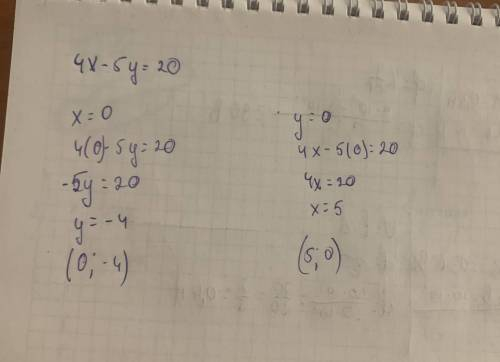 4x - 5y = 20
x = 0
4(0) - 5y = 20
-5y = 20
y = -4
(0; -4)
y = 0
4x - 5(0) = 20
4x = 20
x = 5
(5; 0)